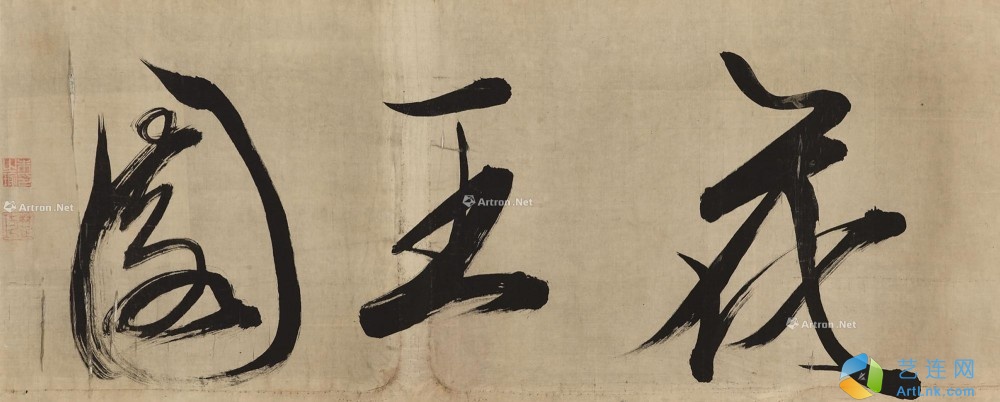 王園
Artron.Net
Artron.Net
Artron.Net
艺连网
ArtLnk.com